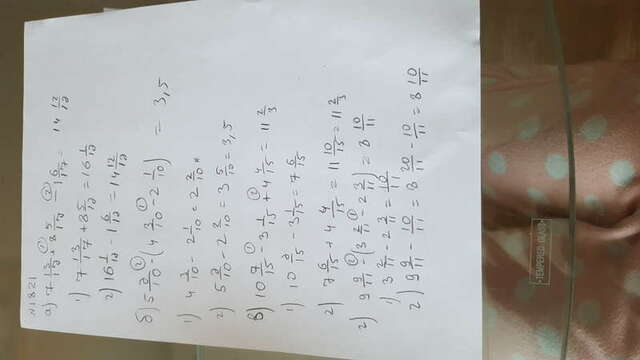 №1821
а) 7 13/17 + 8 5/17 - 1 6/17 = 14 12/17
1) 7 13/17 + 8 5/17 = 16 1/17
2) 16 1/17 - 1 6/17 = 14 12/17
б) 5 7/10 - (4 3/10 - 2 1/10) = 3,5
1) 4 3/10 - 2 1/10 = 2 2/10
2) 5 7/10 - 2 2/10 = 3 5/10 = 3,5
в) 10 7/15 - 3 1/15 + 4 4/15 = 11 2/3
1) 10 7/15 - 3 1/15 = 7 6/15
2) 7 6/15 + 4 4/15 = 11 10/15 = 11 2/3
г) 9 9/11 - (3 2/11 - 2 3/11) = 8 10/11
1) 3 2/11 - 2 3/11 = 10/11
2) 9 9/11 - 10/11 = 8 20/11 - 10/11 = 8 10/11
TEMPERED GLASS